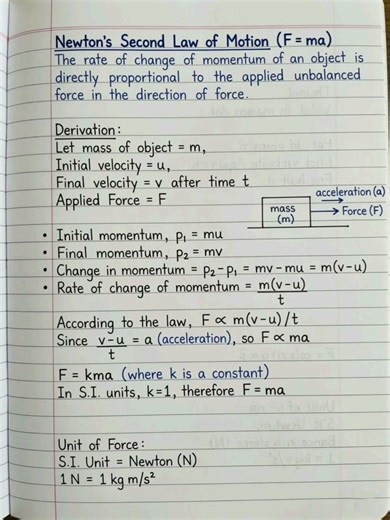 Newton's Second Law of Motion (F = ma)
The rate of change of momentum of an object is
directly proportional to the applied unbalanced
force in the direction of force.
Derivation:
Let mass of object = m,
Initial velocity = u,
Final velocity = v after time t
Applied Force = F
acceleration (a)
mass
(m)
Force (F)
• Initial momentum, p₁ = mu
• Final momentum, p₂ = mv
• Change in momentum = p₂ – p₁ = mv – mu = m(v-u)
• Rate of change of momentum = m(v-u)
t
According to the law, F ∝ m(v-u)/t
Since v-u = a (acceleration), so F ∝ ma
t
F = kma (where k is a constant)
In S.I. units, k=1, therefore F = ma
Unit of Force:
S.I. Unit = Newton (N)
1 N = 1 kg m/s²